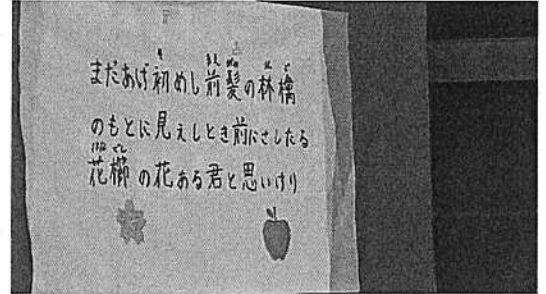 まだあげ初めし前髪の林檎
のもとに見えしとき前にさしたる
花櫛の花ある君と思いけり